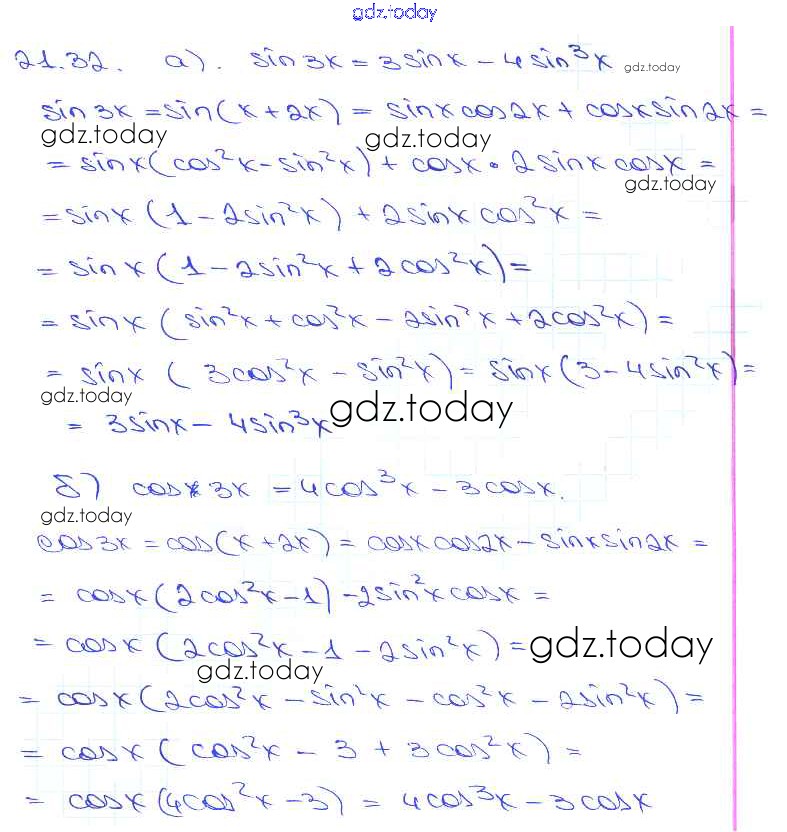 gdz.today
21.32. а). sin3x = 3sinx - 4sin³x gdz.today
sin3x = sin(x+2x) = sinxcos2x + cosxsin2x =
gdz.today gdz.today
= sinx(cos²x - sin²x) + cosx • 2sinxcosx =
gdz.today
= sinx(1 - 2sin²x) + 2sinxcos²x =
= sinx(1 - 2sin²x + 2cos²x) =
= sinx(sin²x + cos²x - 2sin²x + 2cos²x) =
= sinx(3cos²x - sin²x) = sinx(3 - 4sin²x) =
gdz.today
= 3sinx - 4sin³x gdz.today
б) cos3x = 4cos³x - 3cosx.
gdz.today
cos3x = cos(x+2x) = cosxcos2x - sinxsin2x =
= cosx(2cos²x - 1) - 2sin²xcosx =
= cosx(2cos²x - 1 - 2sin²x) = gdz.today
gdz.today
= cosx(2cos²x - sin²x - cos²x - 2sin²x) =
= cosx(cos²x - 3 + 3cos²x) =
= cosx(4cos²x - 3) = 4cos³x - 3cosx